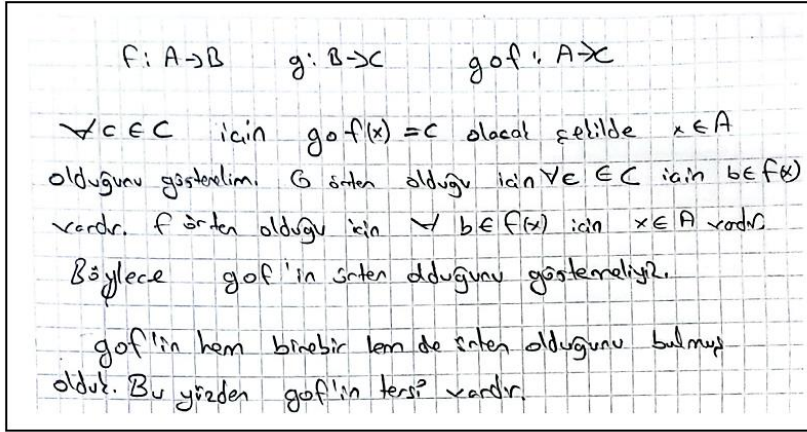 f: A→B   g: B→C   gof: A→C
∀c∈C için gof(x)=c olacak şekilde x∈A
olduğunu gösterelim. G örten olduğu için ∀c ∈C için b∈f(x)
vardır. f örten olduğu için ∀ b∈f(x) için x∈A vardır.
Böylece gof'in örten olduğunu göstermeliyiz.
gof'in hem birebir hem de örten olduğunu bulmuş
olduk. Bu yüzden gof'in tersi vardır.